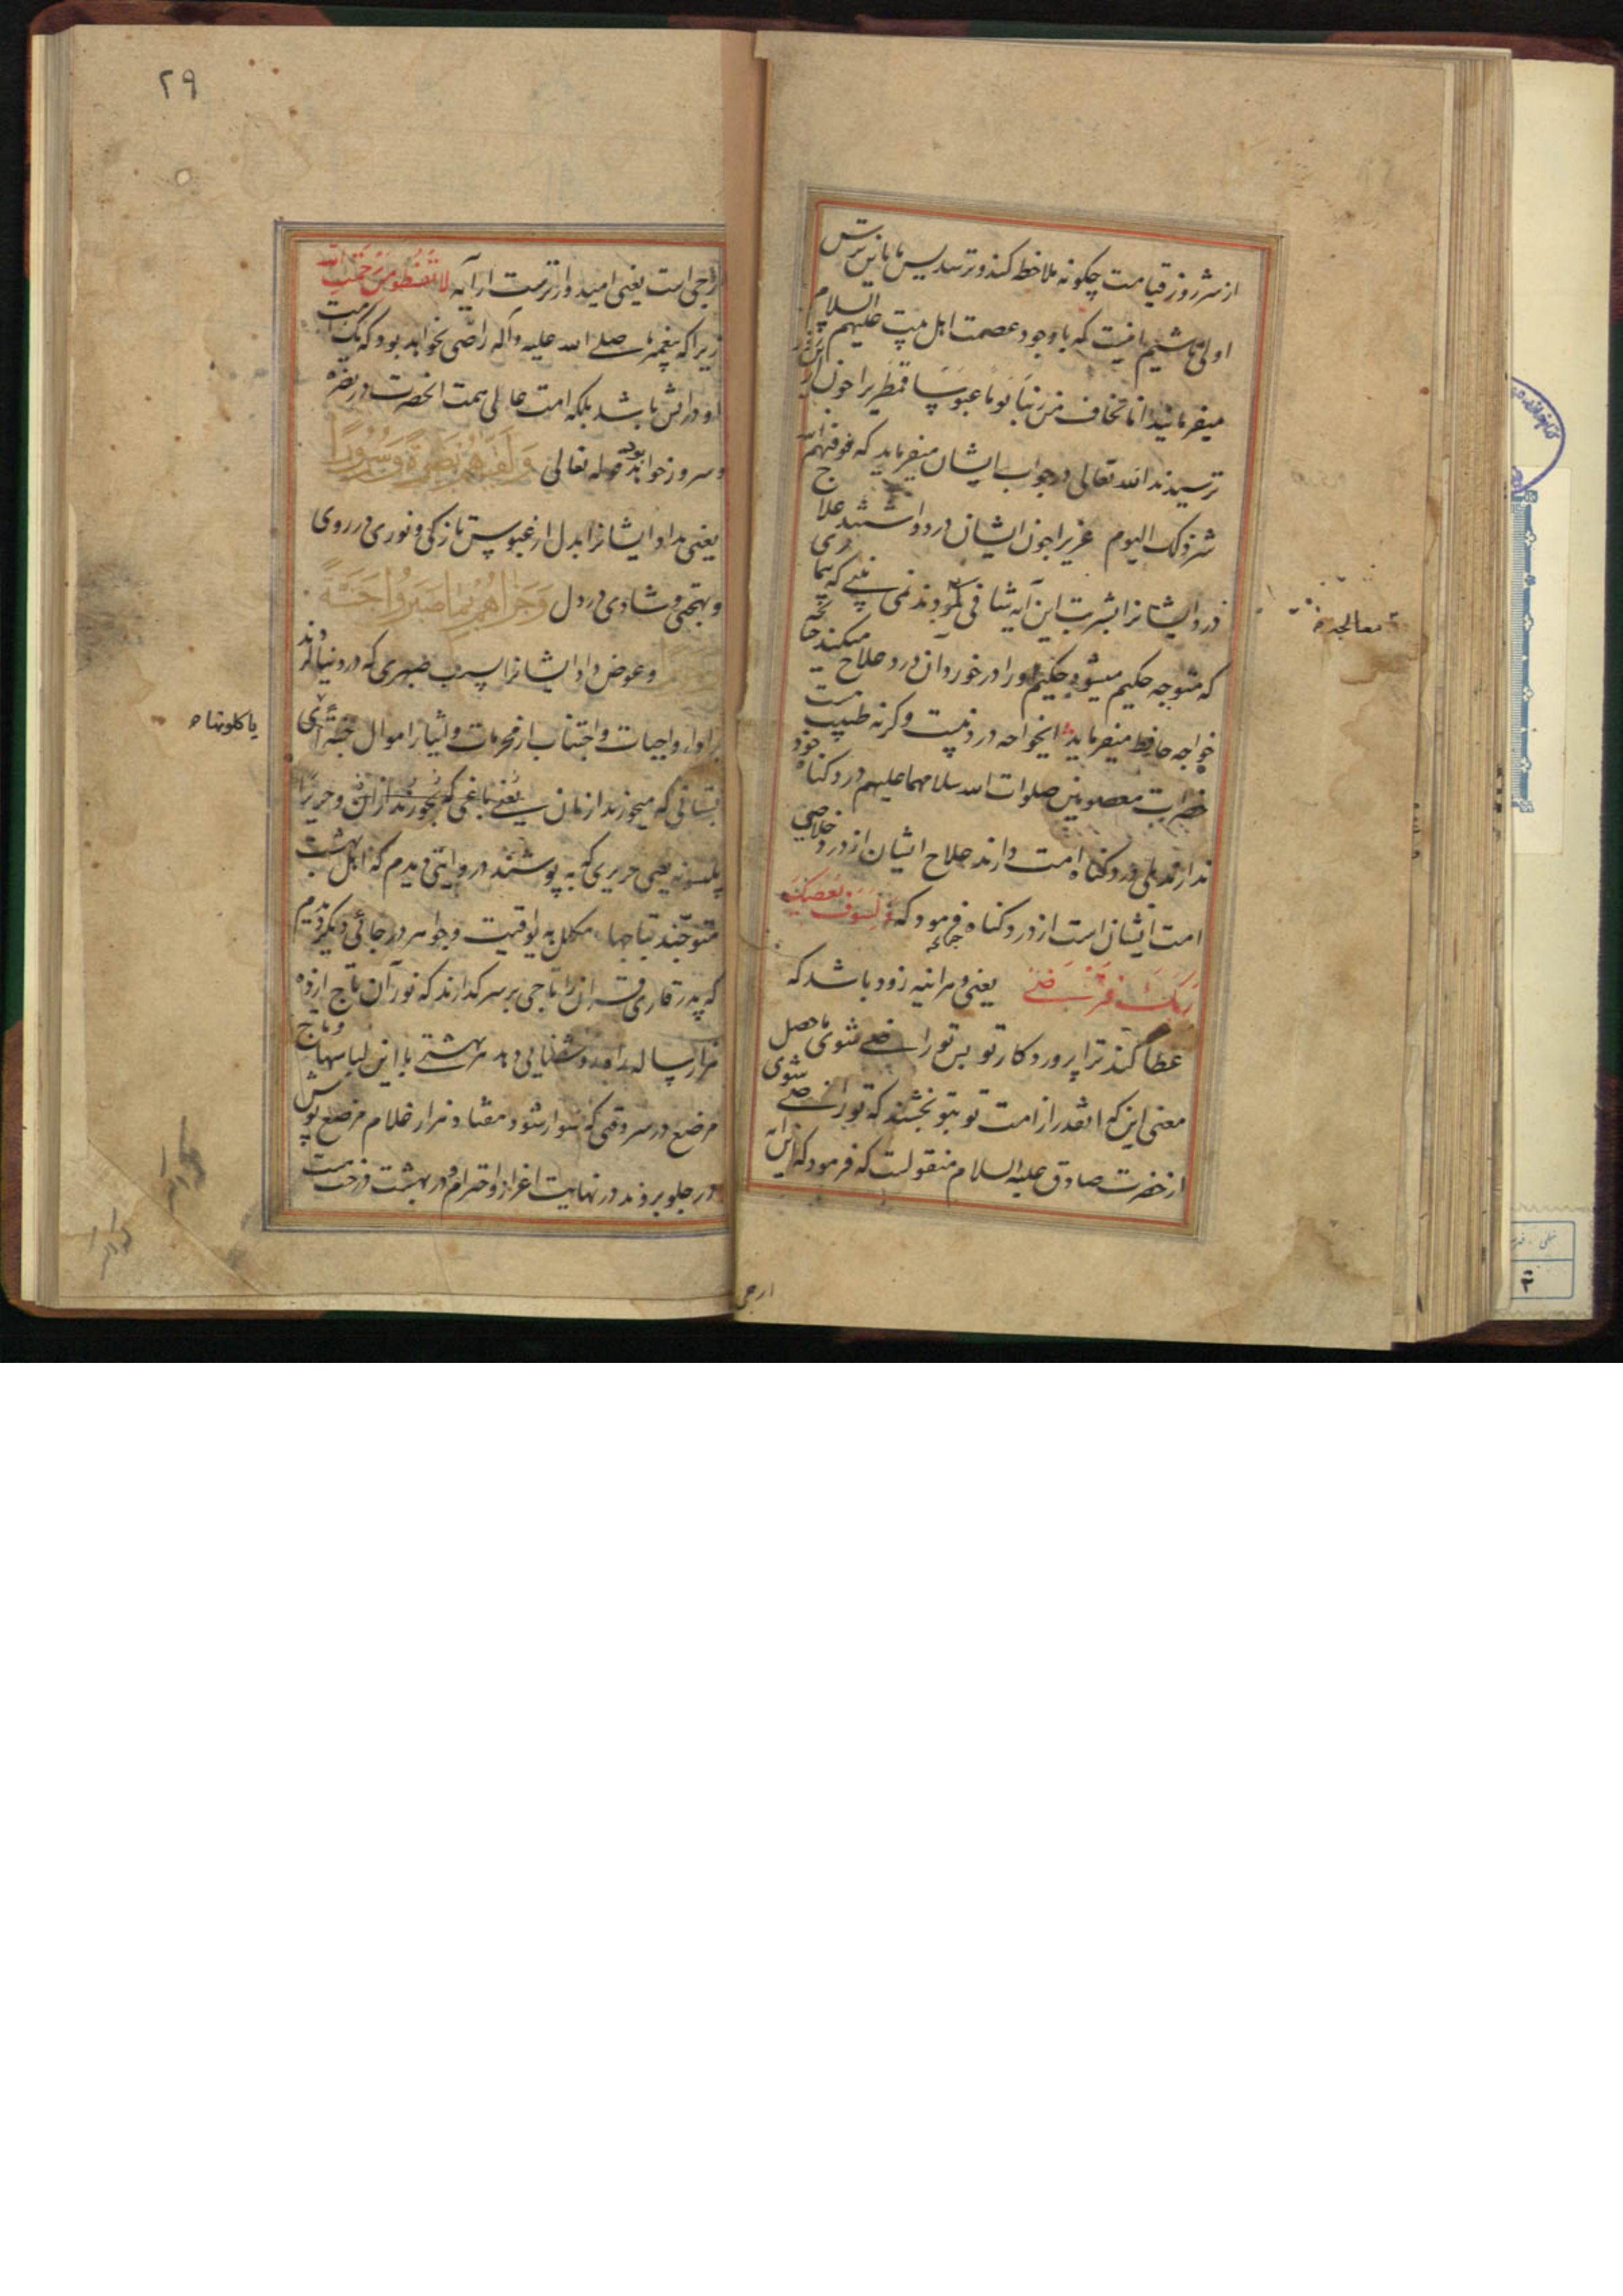 از شر روز قیامت چگونه ملاحظه کند و ترسد پس ما باین ترس
اولی باشیم یا نیست که با وجود عصمت اهل بیت علیهم السلام
میفرمایند انا نخاف من ربنا یوما عبوسا قمطریرا چون از این روز
ترسیدند الله تعالی در جواب ایشان میفرماید که فوقیهم الله
شر ذلک الیوم عزیرا چون ایشان درد داشتند علاج
درد ایشانرا بشربت این آیه شافی نمودند نمی بینی که بیماری
که متوجه حکیم میشود حکیم او را در خور دان درد علاج میکند چنانچه
خواجه حافظ میفرماید ای خواجه درد نیست وگرنه طبیب هست
حضرات معصومین صلوات الله سلامها علیهم درد گناه خود
ندارند بلی درد گناه امت دارند علاج ایشان از درد خلاصی
امت ایشان است از درد گناه فرمود که وَلَسَوفَ یُعطیکَ
رَبُّکَ فَتَرضی یعنی و هر آینه زود باشد که
عطا کند ترا پروردگار تو پس تو راضی شوی حاصل
معنی این که آنقدر از امت تو بتو بخشند که تو راضی شوی
از حضرت صادق علیه السلام منقولست که فرمود که این آیه
معالجه
ارجی
۲۹
ارجی است یعنی امیدوارترست از آیه لا تقنطوا من رحمة الله
زیرا که پیغمبر ما صلی الله علیه وآله راضی نخواهد بود که یک امت
او در آتش باشد بلکه امت عالی همت انحضرت در نضره
و سرور خواهند بود قوله تعالی وَلَقّاهُم نَضرَةً وَسُرُورًا
یعنی بداد ایشانرا بدل از عبوس تازگی و نوری در روی
و بهجتی و شادی در دل وَجَزاهُم بِما صَبَرُوا جَنَّةً
وعوض داد ایشانرا بسبب صبری که در دنیا کردند
بر اداء واجبات و اجتناب از محرمات و ایثار اموال جنة ای
بستانی که میخورند از آن یعنی باغی که بخورند از آن و حریرا
یلبسونه یعنی حریری که به پوشند در روایتی دیدم که اهل بهشت
متوجند بتاجها، مکلل به یواقیت و جواهر در جائی دیگر دیدم
که پدر قاری قرآن را تاجی بر سر گذارند که نور آن تاج از ده
هزار ساله راه روشنایی دهد بهشتی با این لباسها و تاج
مرصع در هر وقتی که سوار شود هفتاد هزار غلام مرصع پوش
در جلو بروند در نهایت اعزاز و احترام و در بهشت درختست
یاکلونها